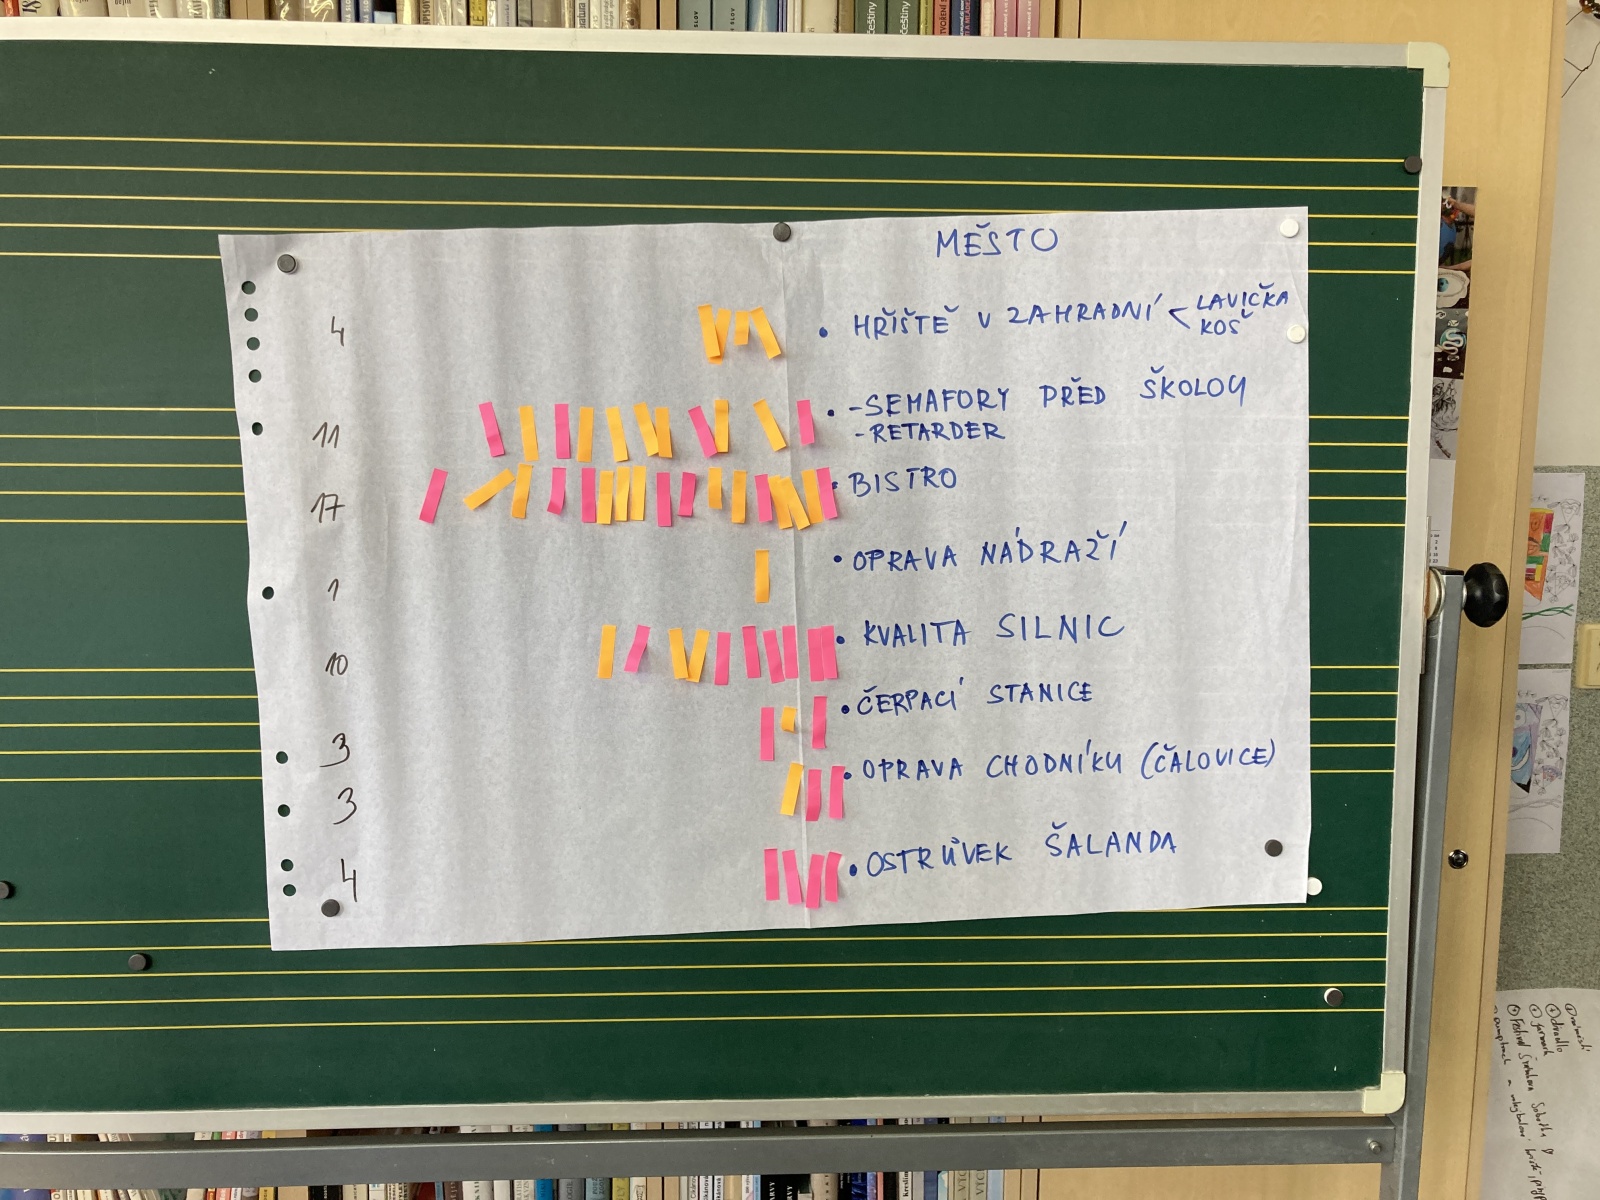 MĚSTO
4 • HŘIŠTĚ V ZAHRADNÍ < LAVIČKA
KOŠ
11 • -SEMAFORY PŘED ŠKOLOU
-RETARDER
17 • BISTRO
1 • OPRAVA NÁDRAŽÍ
10 • KVALITA SILNIC
3 • ČERPACÍ STANICE
3 • OPRAVA CHODNÍKU (ČÁLOVICE)
4 • OSTRŮVEK ŠALANDA